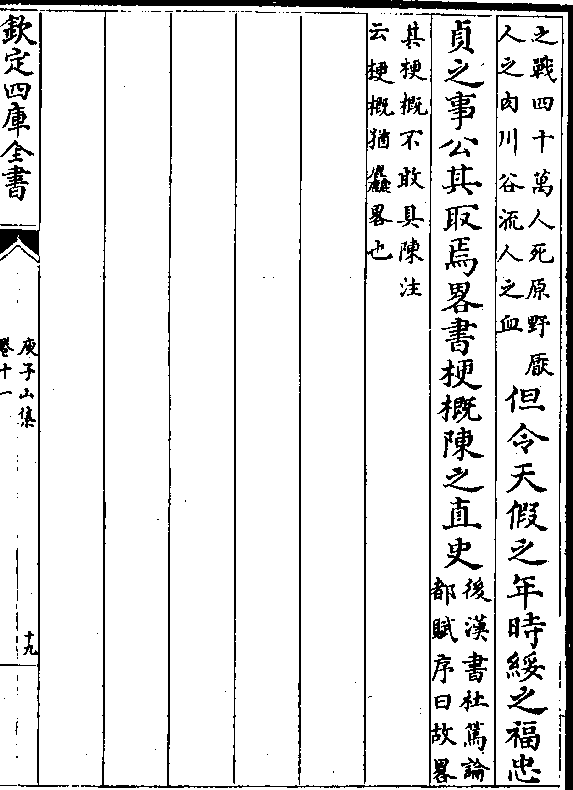 之戰四十萬人死原野厭
人之肉川谷流人之血
但令天假之年時綏之福忠
貞之事公其取焉畧書梗概陳之直史
後漢書杜篤論
都賦序曰故畧
其梗概不敢具陳注
云梗概猶麤畧也
欽定四庫全書
庾子山集
卷十一
十九